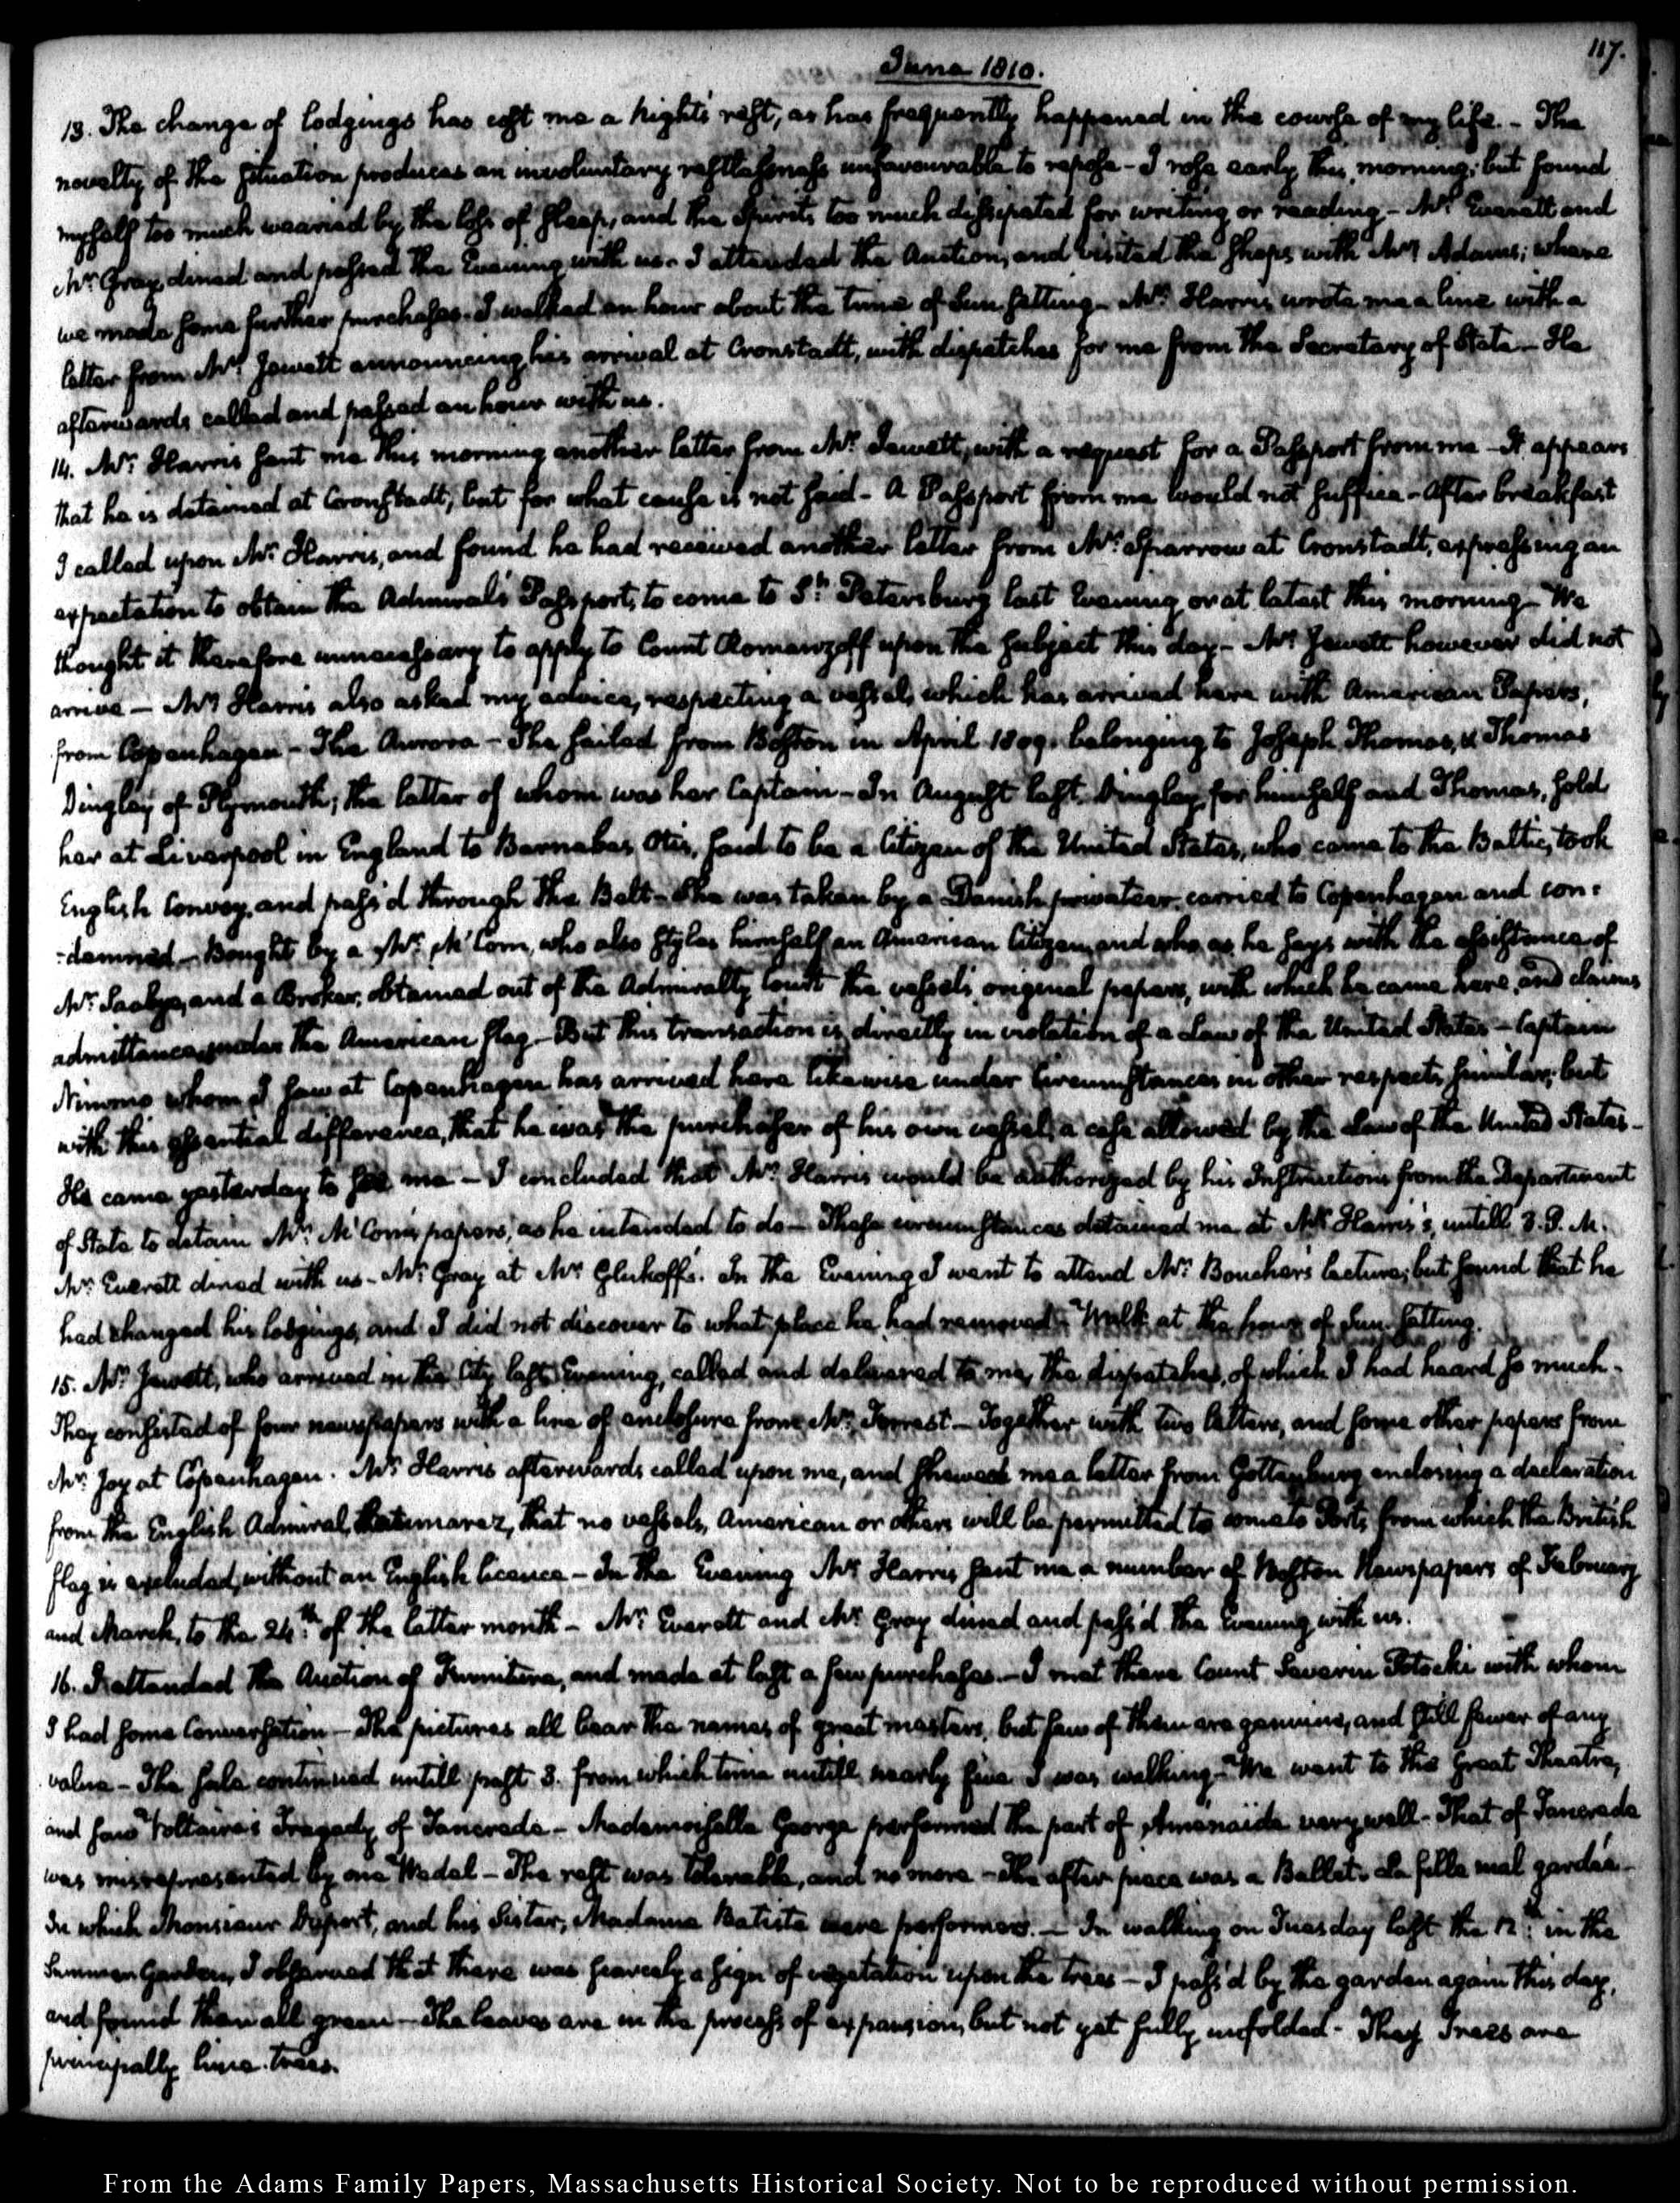 117.
June 1810.
13. The change of lodgings has cost me a night's rest, as has frequently happened in the course of my life. - The
novelty of the situation produces an involuntary restlessness unfavourable to repose - I rose early this morning; but found
myself too much wearied by the loss of sleep, and the Spirits too much dissipated for writing or reading - Mr. Everett and
Mr. Gray dined and passed the Evening with us. I attended the Auction, and visited the shops with Mrs. Adams; where
we made some further purchases. I walked an hour about the time of Sun-setting - Mr. Harris wrote me a line with a
letter from Mr. Jewett announcing his arrival at Cronstadt, with dispatches for me from the Secretary of State - He
afterwards called and passed an hour with us.
14. Mr. Harris sent me this morning another letter from Mr. Jewett, with a request for a Passport from me - It appears
that he is detained at Cronstadt, but for what cause is not said - A Passport from me would not suffice - After breakfast
I called upon Mr. Harris, and found he had received another letter from Mr. Sparrow at Cronstadt, expressing an
expectation to obtain the Admiral's Passport, to come to St. Petersburg last Evening or at latest this morning - We
thought it therefore unnecessary to apply to Count Romanzoff upon the subject this day - Mr. Jewett however did not
arrive - Mr. Harris also asked my advice, respecting a vessel, which has arrived here with American Papers,
from Copenhagen - The Aurora - She sailed from Boston in April 1809. belonging to Joseph Thomas, & Thomas
Dingley of Plymouth; the latter of whom was her Captain - In August last, Dingley, for himself and Thomas, sold
her at Liverpool in England to Barnabas Otis, said to be a Citizen of the United States, who came to the Baltic, took
English Convoy, and pass'd through the Belt - She was taken by a Danish privateer, carried to Copenhagen and con-
-demned - Bought by a Mr. M'Corn, who also styles himself an American Citizen, and who as he says with the assistance of
Mr. Saabye, and a Broker, obtained out of the Admiralty Court the vessel's original papers, with which he came here, and claims
admittance, under the American flag - But this transaction is directly in violation of a Law of the United States - Captain
Nimmo whom I saw at Copenhagen has arrived here likewise under Circumstances in other respects similar; but
with this essential difference, that he was the purchaser of his own vessel, a case allowed by the Law of the United States -
He came yesterday to see me - I concluded that Mr. Harris would be authorized by his Instructions from the Department
of State to detain Mr. M'Corn's papers, as he intended to do - These circumstances detained me at Mr. Harris's, untill 3. P.M.
Mr. Everett dined with us - Mr. Gray at Mr. Glukoff's. In the Evening I went to attend Mr. Boucher's lecture; but found that he
had changed his lodgings, and I did not discover to what place he had removed. Walk at the hour of Sun-setting.
15. Mr. Jewett, who arrived in the City last Evening, called and delivered to me, the dispatches, of which I had heard so much -
They consisted of four newspapers with a line of enclosure from Mr. Forrest - Together with two letters, and some other papers from
Mr. Joy at Copenhagen. Mr. Harris afterwards called upon me, and shewed me a letter from Gottenburg enclosing a declaration
from the English Admiral, that no vessels, American or others will be permitted to come to Ports from which the British
flag is excluded, without an English licence - In the Evening Mr. Harris sent me a number of Boston Newspapers of February
and March, to the 24th. of the latter month - Mr. Everett and Mr. Gray dined and pass'd the Evening with us.
16. I attended the Auction of Furniture, and made at last a few purchases - I met there Count Severin Potocki with whom
I had some Conversation - The pictures all bear the names of great masters, but few of them are genuine, and still fewer of any
value - The sale continued untill past 3. from which time untill nearly five I was walking. We went to the Great Theatre,
and saw Voltaire's Tragedy of Tancrede - Mademoiselle George performed the part of Amenaide very well - That of Tancrede
was misrepresented by one Wedel - The rest was tolerable, and no more - The after piece was a Ballet. La fille mal gardée -
In which Monsieur Duport, and his Sister, Madame Batiste were performers. - In walking on Tuesday last the 12th. in the
Summer Garden, I observed that there was scarcely a sign of vegetation upon the trees - I pass'd by the garden again this day,
and found them all green - The leaves are in the process of expansion, but not yet fully unfolded - They Trees are
principally lime-trees.
From the Adams Family Papers, Massachusetts Historical Society. Not to be reproduced without permission.